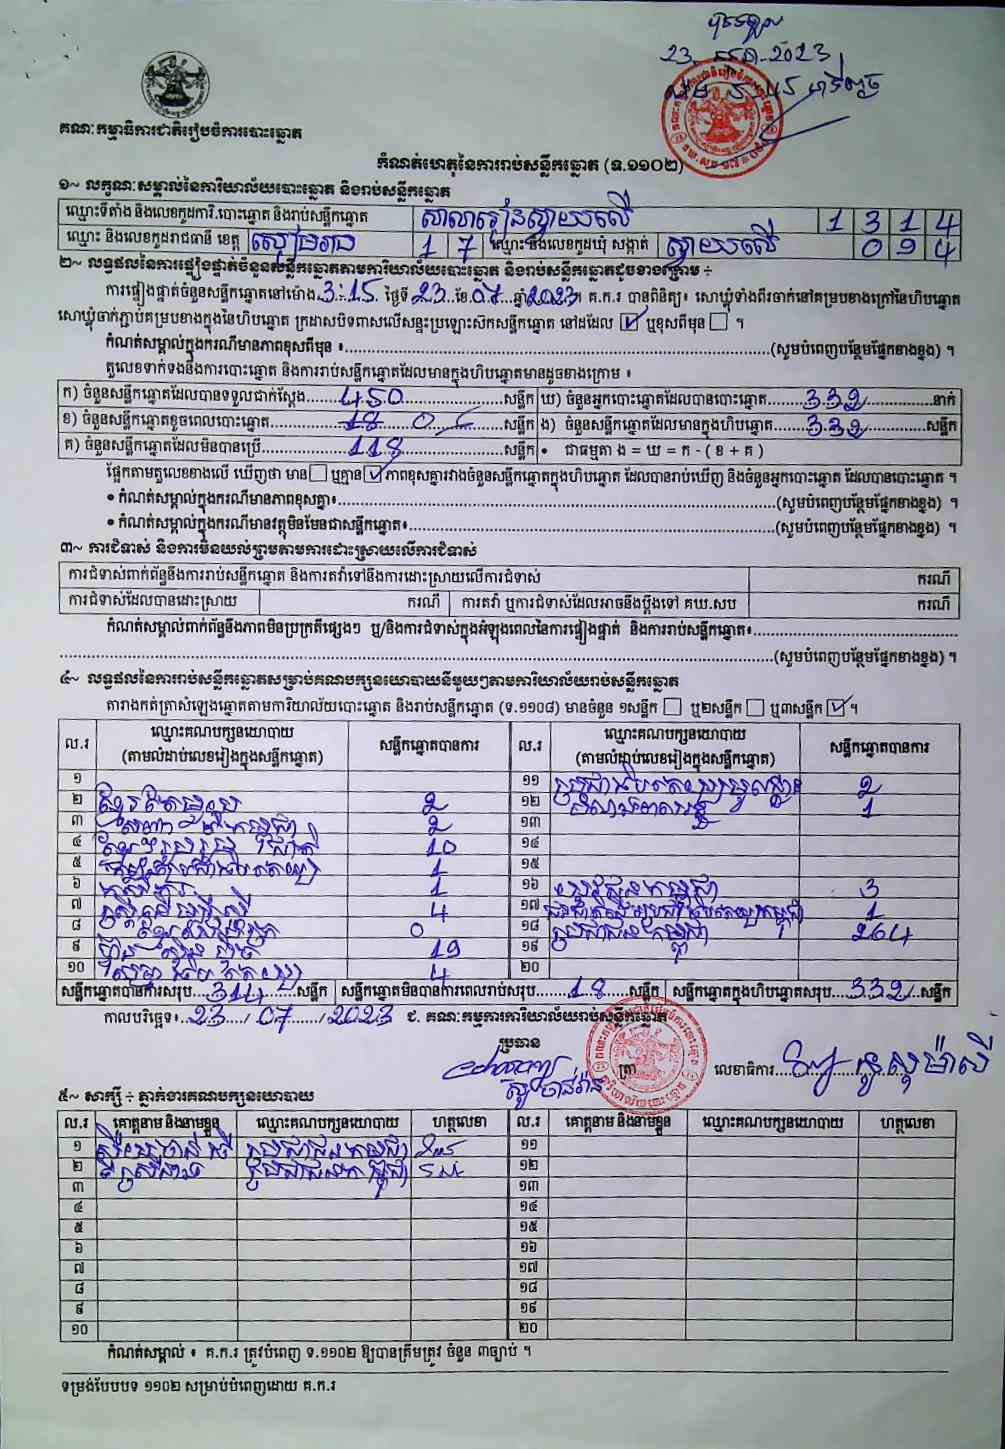 23
2023
គណៈកម្មាធិការជាតិរៀបចំការបោះឆ្នោត
កំណត់ហេតុនៃការរាប់សន្លឹកឆ្នោត (ទ.១១០២)
១~ លក្ខណៈសម្គាល់នៃការិយាល័យបោះឆ្នោត និងរាប់សន្លឹកឆ្នោត
ឈ្មោះទីតាំង និងលេខកូដការិ.បោះឆ្នោត និងរាប់សន្លឹកឆ្នោត សាលារៀនស្វាយលើ 1 3 1 4
ឈ្មោះ និងលេខកូដរាជធានី ខេត្ត សៀមរាប 1 7 ឈ្មោះ និងលេខកូដឃុំ សង្កាត់ ស្វាយលើ 0 9 4
២~ លទ្ធផលនៃការផ្ទៀងផ្ទាត់ចំនួនសន្លឹកឆ្នោតតាមការិយាល័យបោះឆ្នោត និងរាប់សន្លឹកឆ្នោតដូចខាងក្រោម ÷
ការផ្ទៀងផ្ទាត់ចំនួនសន្លឹកឆ្នោតនៅម៉ោង 3:15 ថ្ងៃទី 23 ខែ 07 ឆ្នាំ 2023។ គ.ក.រ បានពិនិត្យ៖ សោឃ្លុំទាំងពីរចាក់នៅគម្របខាងក្រៅនៃហិបឆ្នោត
សោឃ្លុំចាក់ភ្ជាប់គម្របខាងក្នុងនៃហិបឆ្នោត ក្រដាសបិទពាសលើសន្ទះប្រឡោះស៊កសន្លឹកឆ្នោត នៅដដែល ☑ ឬខុសពីមុន ☐ ។
កំណត់សម្គាល់ក្នុងករណីមានភាពខុសពីមុន ៖..........(សូមបំពេញបន្ថែមផ្នែកខាងខ្នង) ។
តួលេខទាក់ទងនឹងការបោះឆ្នោត និងការរាប់សន្លឹកឆ្នោតដែលមានក្នុងហិបឆ្នោតមានដូចខាងក្រោម ៖
ក) ចំនួនសន្លឹកឆ្នោតដែលបានទទួលជាក់ស្តែង 450 សន្លឹក ឃ) ចំនួនអ្នកបោះឆ្នោតដែលបានបោះឆ្នោត 332 នាក់
ខ) ចំនួនសន្លឹកឆ្នោតខូចពេលបោះឆ្នោត 18 0 សន្លឹក ង) ចំនួនសន្លឹកឆ្នោតដែលមានក្នុងហិបឆ្នោត 332 សន្លឹក
គ) ចំនួនសន្លឹកឆ្នោតដែលមិនបានប្រើ 118 សន្លឹក • ជាធម្មតា ង = ឃ = ក - ( ខ + គ )
ផ្អែកតាមតួលេខខាងលើ ឃើញថា មាន ☐ ឬគ្មាន ☑ ភាពខុសគ្នារវាងចំនួនសន្លឹកឆ្នោតក្នុងហិបឆ្នោត ដែលបានរាប់ឃើញ និងចំនួនអ្នកបោះឆ្នោត ដែលបានបោះឆ្នោត ។
• កំណត់សម្គាល់ក្នុងករណីមានភាពខុសគ្នា៖..........(សូមបំពេញបន្ថែមផ្នែកខាងខ្នង) ។
• កំណត់សម្គាល់ក្នុងករណីមានវត្ថុមិនមែនជាសន្លឹកឆ្នោត៖..........(សូមបំពេញបន្ថែមផ្នែកខាងខ្នង) ។
៣~ ការជំទាស់ និងការមិនយល់ព្រមតាមការដោះស្រាយលើការជំទាស់
ការជំទាស់ពាក់ព័ន្ធនឹងការរាប់សន្លឹកឆ្នោត និងការតវ៉ាទៅនឹងការដោះស្រាយលើការជំទាស់ ករណី
ការជំទាស់ដែលបានដោះស្រាយ ករណី ការតវ៉ា ឬការជំទាស់ដែលអាចនឹងប្តឹងទៅ គឃ.សប ករណី
កំណត់សម្គាល់ពាក់ព័ន្ធនឹងភាពមិនប្រក្រតីផ្សេងៗ ឬ/និងការជំទាស់ក្នុងអំឡុងពេលនៃការផ្ទៀងផ្ទាត់ និងការរាប់សន្លឹកឆ្នោត៖..........
..........(សូមបំពេញបន្ថែមផ្នែកខាងខ្នង) ។
៤~ លទ្ធផលនៃការរាប់សន្លឹកឆ្នោតសម្រាប់គណបក្សនយោបាយនីមួយៗតាមការិយាល័យរាប់សន្លឹកឆ្នោត
តារាងកត់ត្រាសំឡេងឆ្នោតតាមការិយាល័យបោះឆ្នោត និងរាប់សន្លឹកឆ្នោត (ទ.១១០៨) មានចំនួន ១សន្លឹក ☐ ឬ២សន្លឹក ☐ ឬ៣សន្លឹក ☑ ។
ល.រ ឈ្មោះគណបក្សនយោបាយ (តាមលំដាប់លេខរៀងក្នុងសន្លឹកឆ្នោត) សន្លឹកឆ្នោតបានការ ល.រ ឈ្មោះគណបក្សនយោបាយ (តាមលំដាប់លេខរៀងក្នុងសន្លឹកឆ្នោត) សន្លឹកឆ្នោតបានការ
១ ១១ 2
២ ខ្មែរតែមួយ 2 ១២ 1
៣ 2 ១៣
៤ 10 ១៤
៥ 1 ១៥
៦ 1 ១៦ 3
៧ 4 ១៧ 1
៨ 0 ១៨ ប្រជាជនកម្ពុជា 264
៩ 19 ១៩
១០ 4 ២០
សន្លឹកឆ្នោតបានការសរុប 314 សន្លឹក សន្លឹកឆ្នោតមិនបានការពេលរាប់សរុប 18 សន្លឹក សន្លឹកឆ្នោតក្នុងហិបឆ្នោតសរុប 332 សន្លឹក
កាលបរិច្ឆេទ៖ 23/07/2023 ជ. គណៈកម្មការការិយាល័យរាប់សន្លឹកឆ្នោត
ប្រធាន
ត្រា លេខាធិការ
៥~ សាក្សី ÷ ភ្នាក់ងារគណបក្សនយោបាយ
ល.រ គោត្តនាម និងនាមខ្លួន ឈ្មោះគណបក្សនយោបាយ ហត្ថលេខា ល.រ គោត្តនាម និងនាមខ្លួន ឈ្មោះគណបក្សនយោបាយ ហត្ថលេខា
១ ប្រជាជនកម្ពុជា ១១
២ ប្រជាជនកម្ពុជា ១២
៣ ១៣
៤ ១៤
៥ ១៥
៦ ១៦
៧ ១៧
៨ ១៨
៩ ១៩
១០ ២០
កំណត់សម្គាល់ ៖ គ.ក.រ ត្រូវបំពេញ ទ.១១០២ ឱ្យបានត្រឹមត្រូវ ចំនួន ៣ច្បាប់ ។
ទម្រង់បែបបទ ១១០២ សម្រាប់បំពេញដោយ គ.ក.រ